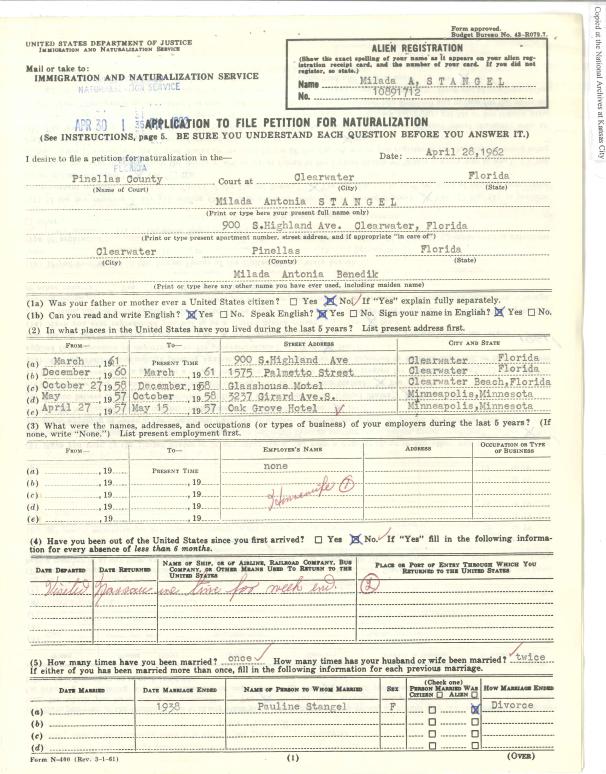 Form approved.
Budget Bureau No. 43-R079.7.
UNITED STATES DEPARTMENT OF JUSTICE
IMMIGRATION AND NATURALIZATION SERVICE
Mail or take to:
IMMIGRATION AND NATURALIZATION SERVICE
ALIEN REGISTRATION
(Show the exact spelling of your name as it appears on your alien registration receipt card, and the number of your card. If you did not register, so state.)
Name Milada A, STANGEL
No. 10891712
APR 30
APPLICATION TO FILE PETITION FOR NATURALIZATION
(See INSTRUCTIONS, page 5. BE SURE YOU UNDERSTAND EACH QUESTION BEFORE YOU ANSWER IT.)
I desire to file a petition for naturalization in the— Date: April 28,1962
FLORIDA
Pinellas County Court at Clearwater Florida
(Name of Court) (City) (State)
Milada Antonia S T A N G E L
(Print or type here your present full name only)
900 S.Highland Ave. Clearwater, Florida
(Print or type present apartment number, street address, and if appropriate "in care of")
Clearwater Pinellas Florida
(City) (County) (State)
Milada Antonia Benedik
(Print or type here any other name you have ever used, including maiden name)
(1a) Was your father or mother ever a United States citizen? Yes No. If "Yes" explain fully separately.
(1b) Can you read and write English? Yes No. Speak English? Yes No. Sign your name in English? Yes No.
(2) In what places in the United States have you lived during the last 5 years? List present address first.
FROM— TO— STREET ADDRESS CITY AND STATE
(a) March , 1961 PRESENT TIME 900 S.Highland Ave Clearwater Florida
(b) December , 19 60 March , 19 61 1575 Palmetto Street Clearwater Florida
(c) October 27 , 19 58 December, Glasshouse Motel Clearwater Beach,Florida
(d) May , 19 57 October , 19 58 3237 Girard Ave.S. Minneapolis,Minnesota
(e) April 27 , 19 57 May 15 , 19 57 Oak Grove Hotel Minneapolis,Minnesota
(3) What were the names, addresses, and occupations (or types of business) of your employers during the last 5 years? (If
none, write "None.") List present employment first.
FROM— TO— EMPLOYER'S NAME ADDRESS OCCUPATION OR TYPE OF BUSINESS
(a) , 19 PRESENT TIME none
(b) , 19 , 19
(c) , 19 , 19 Housewife 1
(d) , 19 , 19
(e) , 19 , 19
(4) Have you been out of the United States since you first arrived? Yes No. If "Yes" fill in the following informa-
tion for every absence of less than 6 months.
DATE DEPARTED DATE RETURNED NAME OF SHIP, OR OF AIRLINE, RAILROAD COMPANY, BUS COMPANY, OR OTHER MEANS USED TO RETURN TO THE UNITED STATES PLACE OR PORT OF ENTRY THROUGH WHICH YOU RETURNED TO THE UNITED STATES
Visited Nassau one time for week end. 2
(5) How many times have you been married? once How many times has your husband or wife been married? twice
If either of you has been married more than once, fill in the following information for each previous marriage.
DATE MARRIED DATE MARRIAGE ENDED NAME OF PERSON TO WHOM MARRIED SEX (Check one) PERSON MARRIED WAS CITIZEN ALIEN HOW MARRIAGE ENDED
(a) 1938 Pauline Stangel F Divorce
(b)
(c)
(d)
Form N-400 (Rev. 3-1-61) (1) (OVER)
Copied at the National Archives at Kansas City